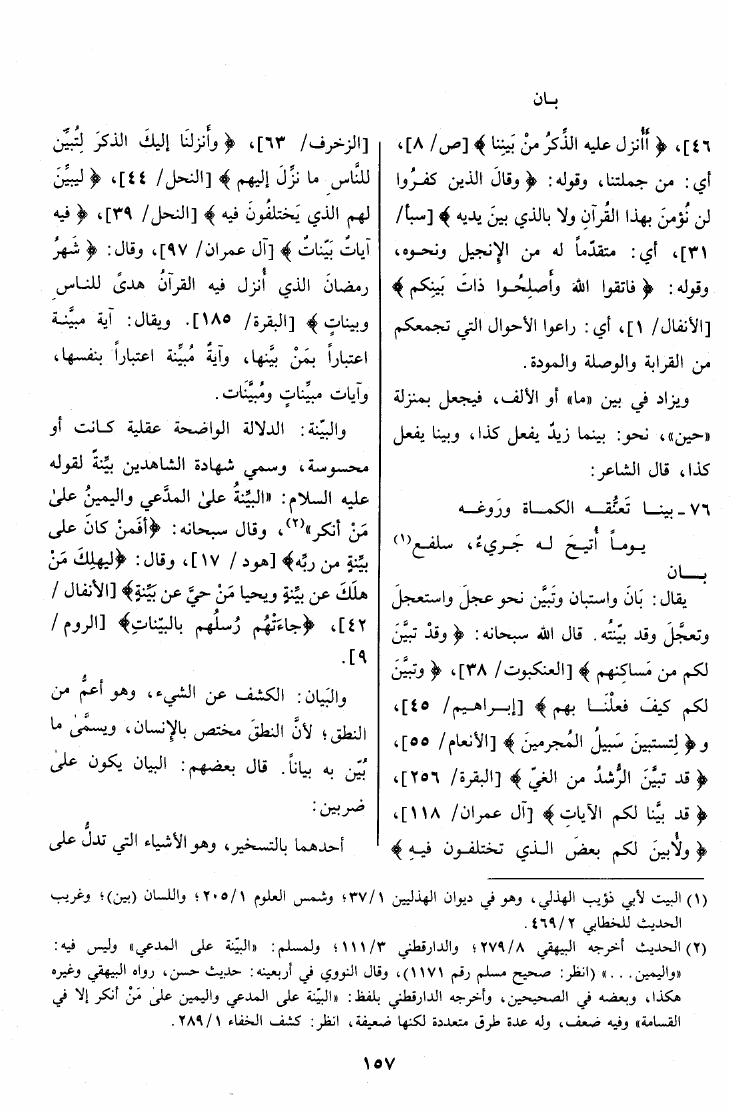 بان
٤٦]، ﴿ أَأُنزل عليه الذِّكرُ مِنْ بَيننا ﴾ [ص/ ٨]،
أي: من جملتنا، وقوله: ﴿ وقالَ الذين كفرُوا
لن نُؤمنَ بهذا القُرآنِ ولا بالذي بينَ يديه ﴾ [سبأ/
٣١]، أي: متقدّماً له من الإنجيل ونحوه،
وقوله: ﴿ فاتقوا اللهَ وأَصلِحُوا ذاتَ بَينِكم ﴾
[الأنفال/ ١]، أي: راعوا الأحوال التي تجمعكم
من القرابة والوصلة والمودة.
ويزاد في بين «ما» أو الألف، فيجعل بمنزلة
«حين»، نحو: بينما زيدٌ يفعل كذا، وبينا يفعل
كذا، قال الشاعر:
٧٦ - بينا تَعنُّقه الكماة ورَوغه
يوماً أُتيحَ له جَريءٌ، سلفع(١)
بان
يقال: بَانَ واستبان وتَبيَّن نحو عجلَ واستعجلَ
وتعجَّلَ وقد بيّنته. قال الله سبحانه: ﴿ وقدْ تبيَّنَ
لكم من مَساكِنهم ﴾ [العنكبوت/ ٣٨]، ﴿ وتبيَّنَ
لكم كيفَ فعلْنَا بهم ﴾ [إبراهيم/ ٤٥]،
و﴿ لِتستبينَ سَبيلُ المُجرمينَ ﴾ [الأنعام/ ٥٥]،
﴿ قد تبيَّنَ الرُّشدُ من الغيّ ﴾ [البقرة/ ٢٥٦]،
﴿ قد بيَّنا لكم الآياتِ ﴾ [آل عمران/ ١١٨]،
﴿ ولأُبينَ لكم بعضَ الذي تختلفون فيهِ ﴾
[الزخرف/ ٦٣]، ﴿ وأَنزلنَا إليكَ الذكرَ لِتُبيِّن
للنَّاسِ ما نزِّلَ إليهم ﴾ [النحل/ ٤٤]، ﴿ ليبيِّنَ
لهم الذي يَختلفُونَ فيه ﴾ [النحل/ ٣٩]، ﴿ فيه
آياتٌ بيّناتٌ ﴾ [آل عمران/ ٩٧]، وقال: ﴿ شهرُ
رمضانَ الذي أُنزل فيه القرآنُ هدىً للناسِ
وبيناتٍ ﴾ [البقرة/ ١٨٥]. ويقال: آية مبيَّنة
اعتباراً بمَنْ بيَّنها، وآيةٌ مُبيِّنة اعتباراً بنفسها،
وآيات مبيِّناتٍ ومُبيَّنات.
والبيّنة: الدلالة الواضحة عقلية كانت أو
محسوسة، وسمي شهادة الشاهدين بيِّنةً لقوله
عليه السلام: «البيِّنةُ علىٰ المدَّعي واليمينُ علىٰ
مَنْ أنكر»(٢)، وقال سبحانه: ﴿أفمنْ كانَ على
بيِّنةٍ من ربِّه﴾ [هود/ ١٧]، وقال: ﴿ليهلِكَ مَنْ
هلَكَ عن بيِّنةٍ ويحيا مَنْ حيَّ عن بَيِّنةٍ﴾ [الأنفال/
٤٢]، ﴿جاءَتْهُم رُسلُهم بالبيّناتِ﴾ [الروم/
٩].
والبَيان: الكشف عن الشيء، وهو أعمُّ من
النطق؛ لأنَّ النطقَ مختص بالإنسان، ويسمَّىٰ ما
بُيّن به بياناً. قال بعضهم: البيان يكون علىٰ
ضربين:
أحدهما بالتسخير، وهو الأشياء التي تدلُّ على
(١) البيت لأبي ذؤيب الهذلي، وهو في ديوان الهذليين ٣٧/١؛ وشمس العلوم ٢٠٥/١؛ واللسان (بين)؛ وغريب
الحديث للخطابي ٤٦٩/٢.
(٢) الحديث أخرجه البيهقي ٢٧٩/٨؛ والدارقطني ١١١/٣؛ ولمسلم: «البيّنة على المدعي» وليس فيه:
«واليمين...» (انظر: صحيح مسلم رقم ١١٧١)، وقال النووي في أربعينه: حديث حسن، رواه البيهقي وغيره
هكذا، وبعضه في الصحيحين، وأخرجه الدارقطني بلفظ: «البيّنة على المدعي واليمين علىٰ مَنْ أنكر إلا في
القسامة» وفيه ضعف، وله عدة طرق متعددة لكنها ضعيفة، انظر: كشف الخفاء ٢٨٩/١.
١٥٧